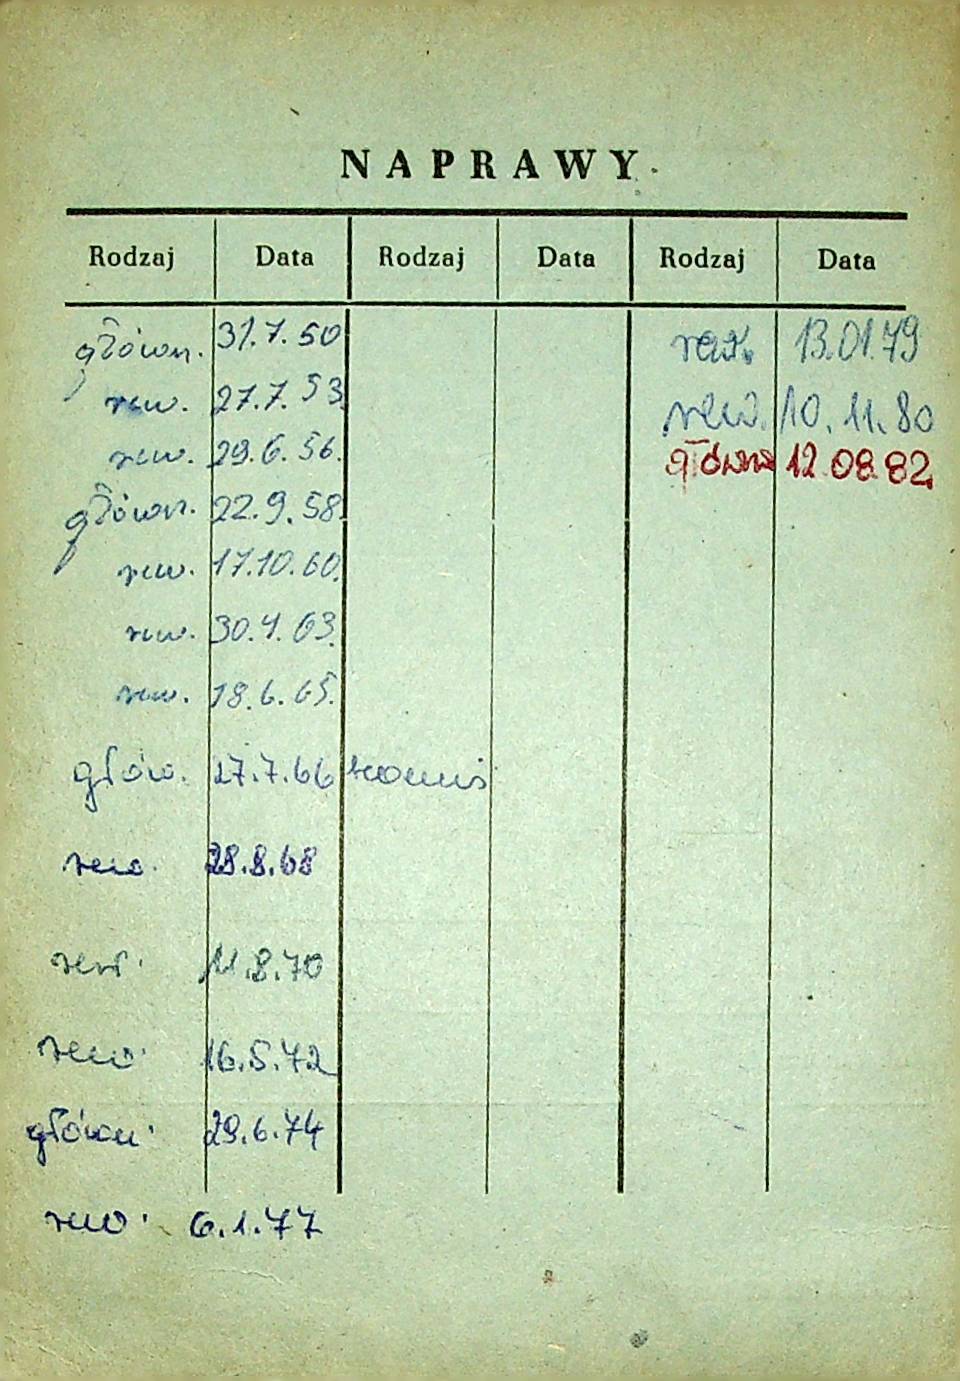 NAPRAWY
Rodzaj Data Rodzaj Data Rodzaj Data
główn. 31.7.50
rew. 27.7.53
rew. 29.6.56.
główn. 22.9.58
rew. 17.10.60.
rew. 30.4.63.
rew. 18.6.65.
głów. 27.7.66
rew. 28.8.68
rew. 11.8.70
rew. 16.5.72
główn. 29.6.74
rew. 6.1.77
13.01.79
rew. 10.11.80
główna 12.08.82.